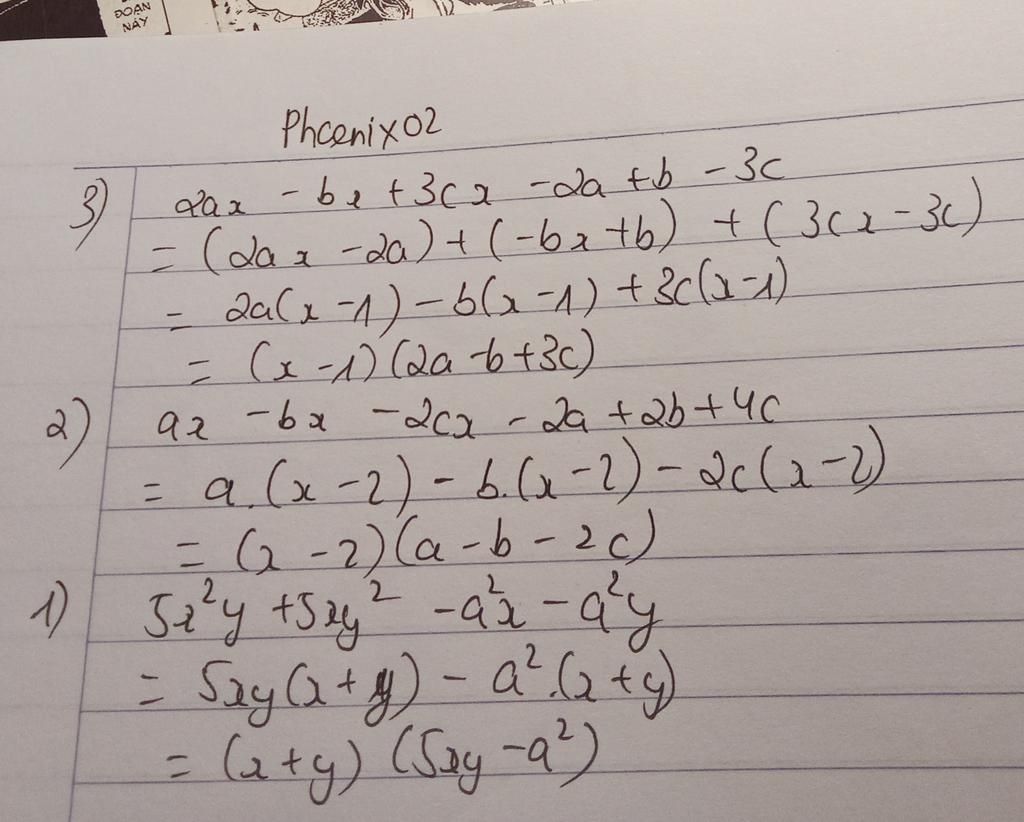 ĐOẠN
NÀY
Phoenix02
3) 2ax - bx + 3cx - 2a + b - 3c
= (2ax - 2a) + (-bx + b) + (3cx - 3c)
= 2a(x - 1) - b(x - 1) + 3c(x - 1)
= (x - 1)(2a - b + 3c)
2) ax - bx - 2cx - 2a + 2b + 4c
= a.(x - 2) - b.(x - 2) - 2c(x - 2)
= (x - 2)(a - b - 2c)
1) 5x²y + 5xy² - a²x - a²y
= 5xy(x + y) - a².(x + y)
= (x + y) (5xy - a²)